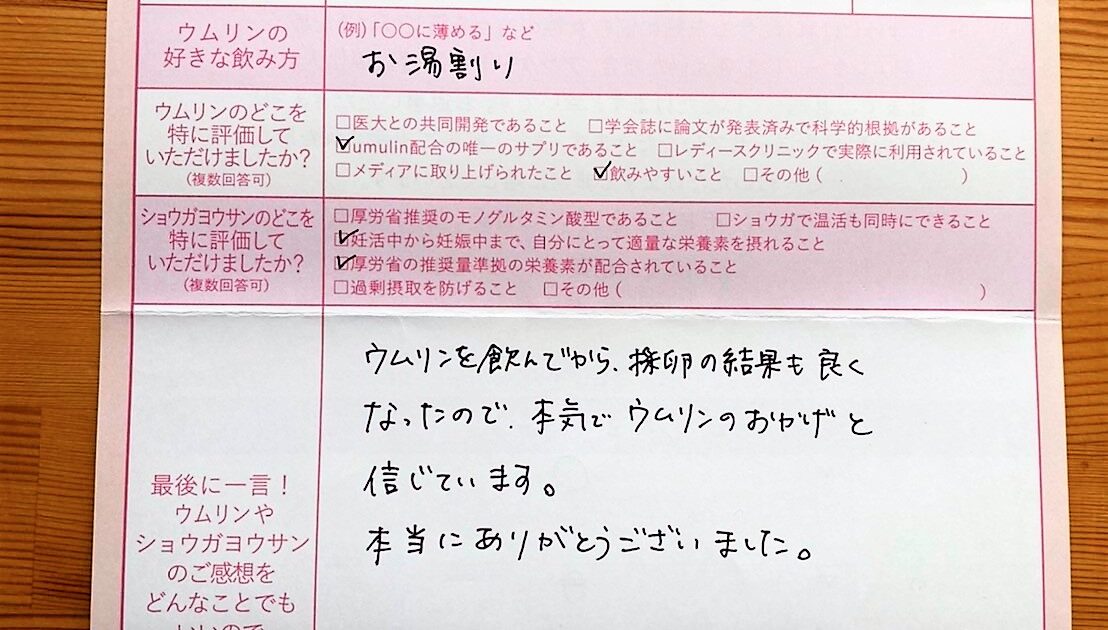 ウムリンの
好きな飲み方
（例）「〇〇に薄める」など
お湯割り
ウムリンのどこを
特に評価して
いただけましたか？
（複数回答可）
□医大との共同開発であること □学会誌に論文が発表済みで科学的根拠があること
☑umulin配合の唯一のサプリであること □レディースクリニックで実際に利用されていること
□メディアに取り上げられたこと ☑飲みやすいこと □その他（ ）
ショウガヨウサンのどこを
特に評価して
いただけましたか？
（複数回答可）
□厚労省推奨のモノグルタミン酸型であること □ショウガで温活も同時にできること
☑妊活中から妊娠中まで、自分にとって適量な栄養素を摂れること
☑厚労省の推奨量準拠の栄養素が配合されていること
□過剰摂取を防げること □その他（ ）
最後に一言！
ウムリンや
ショウガヨウサン
のご感想を
どんなことでも
いいので
ウムリンを飲んでから、採卵の結果も良く
なったので、本気でウムリンのおかげと
信じています。
本当にありがとうございました。